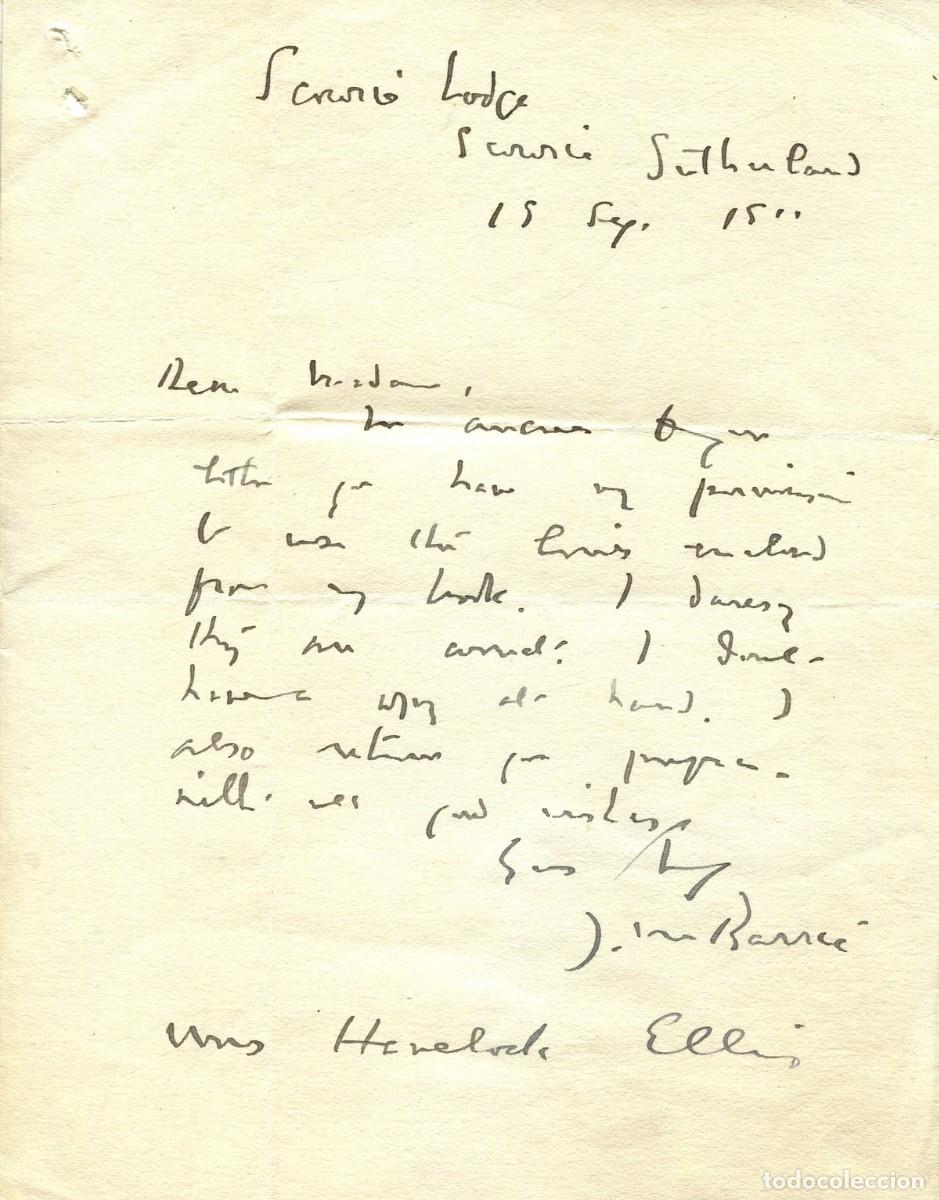 Scourie Lodge
Scourie Sutherland
15 Sep. 1911
Dear Madam,
In answer to your
letter you have my permission
to use the lines enclosed
from my book. I daresay
they are correct: I don't
have a copy at hand. I
also return your
with all good wishes,
Yours
J. M. Barrie
Mrs Havelock Ellis
todocoleccion